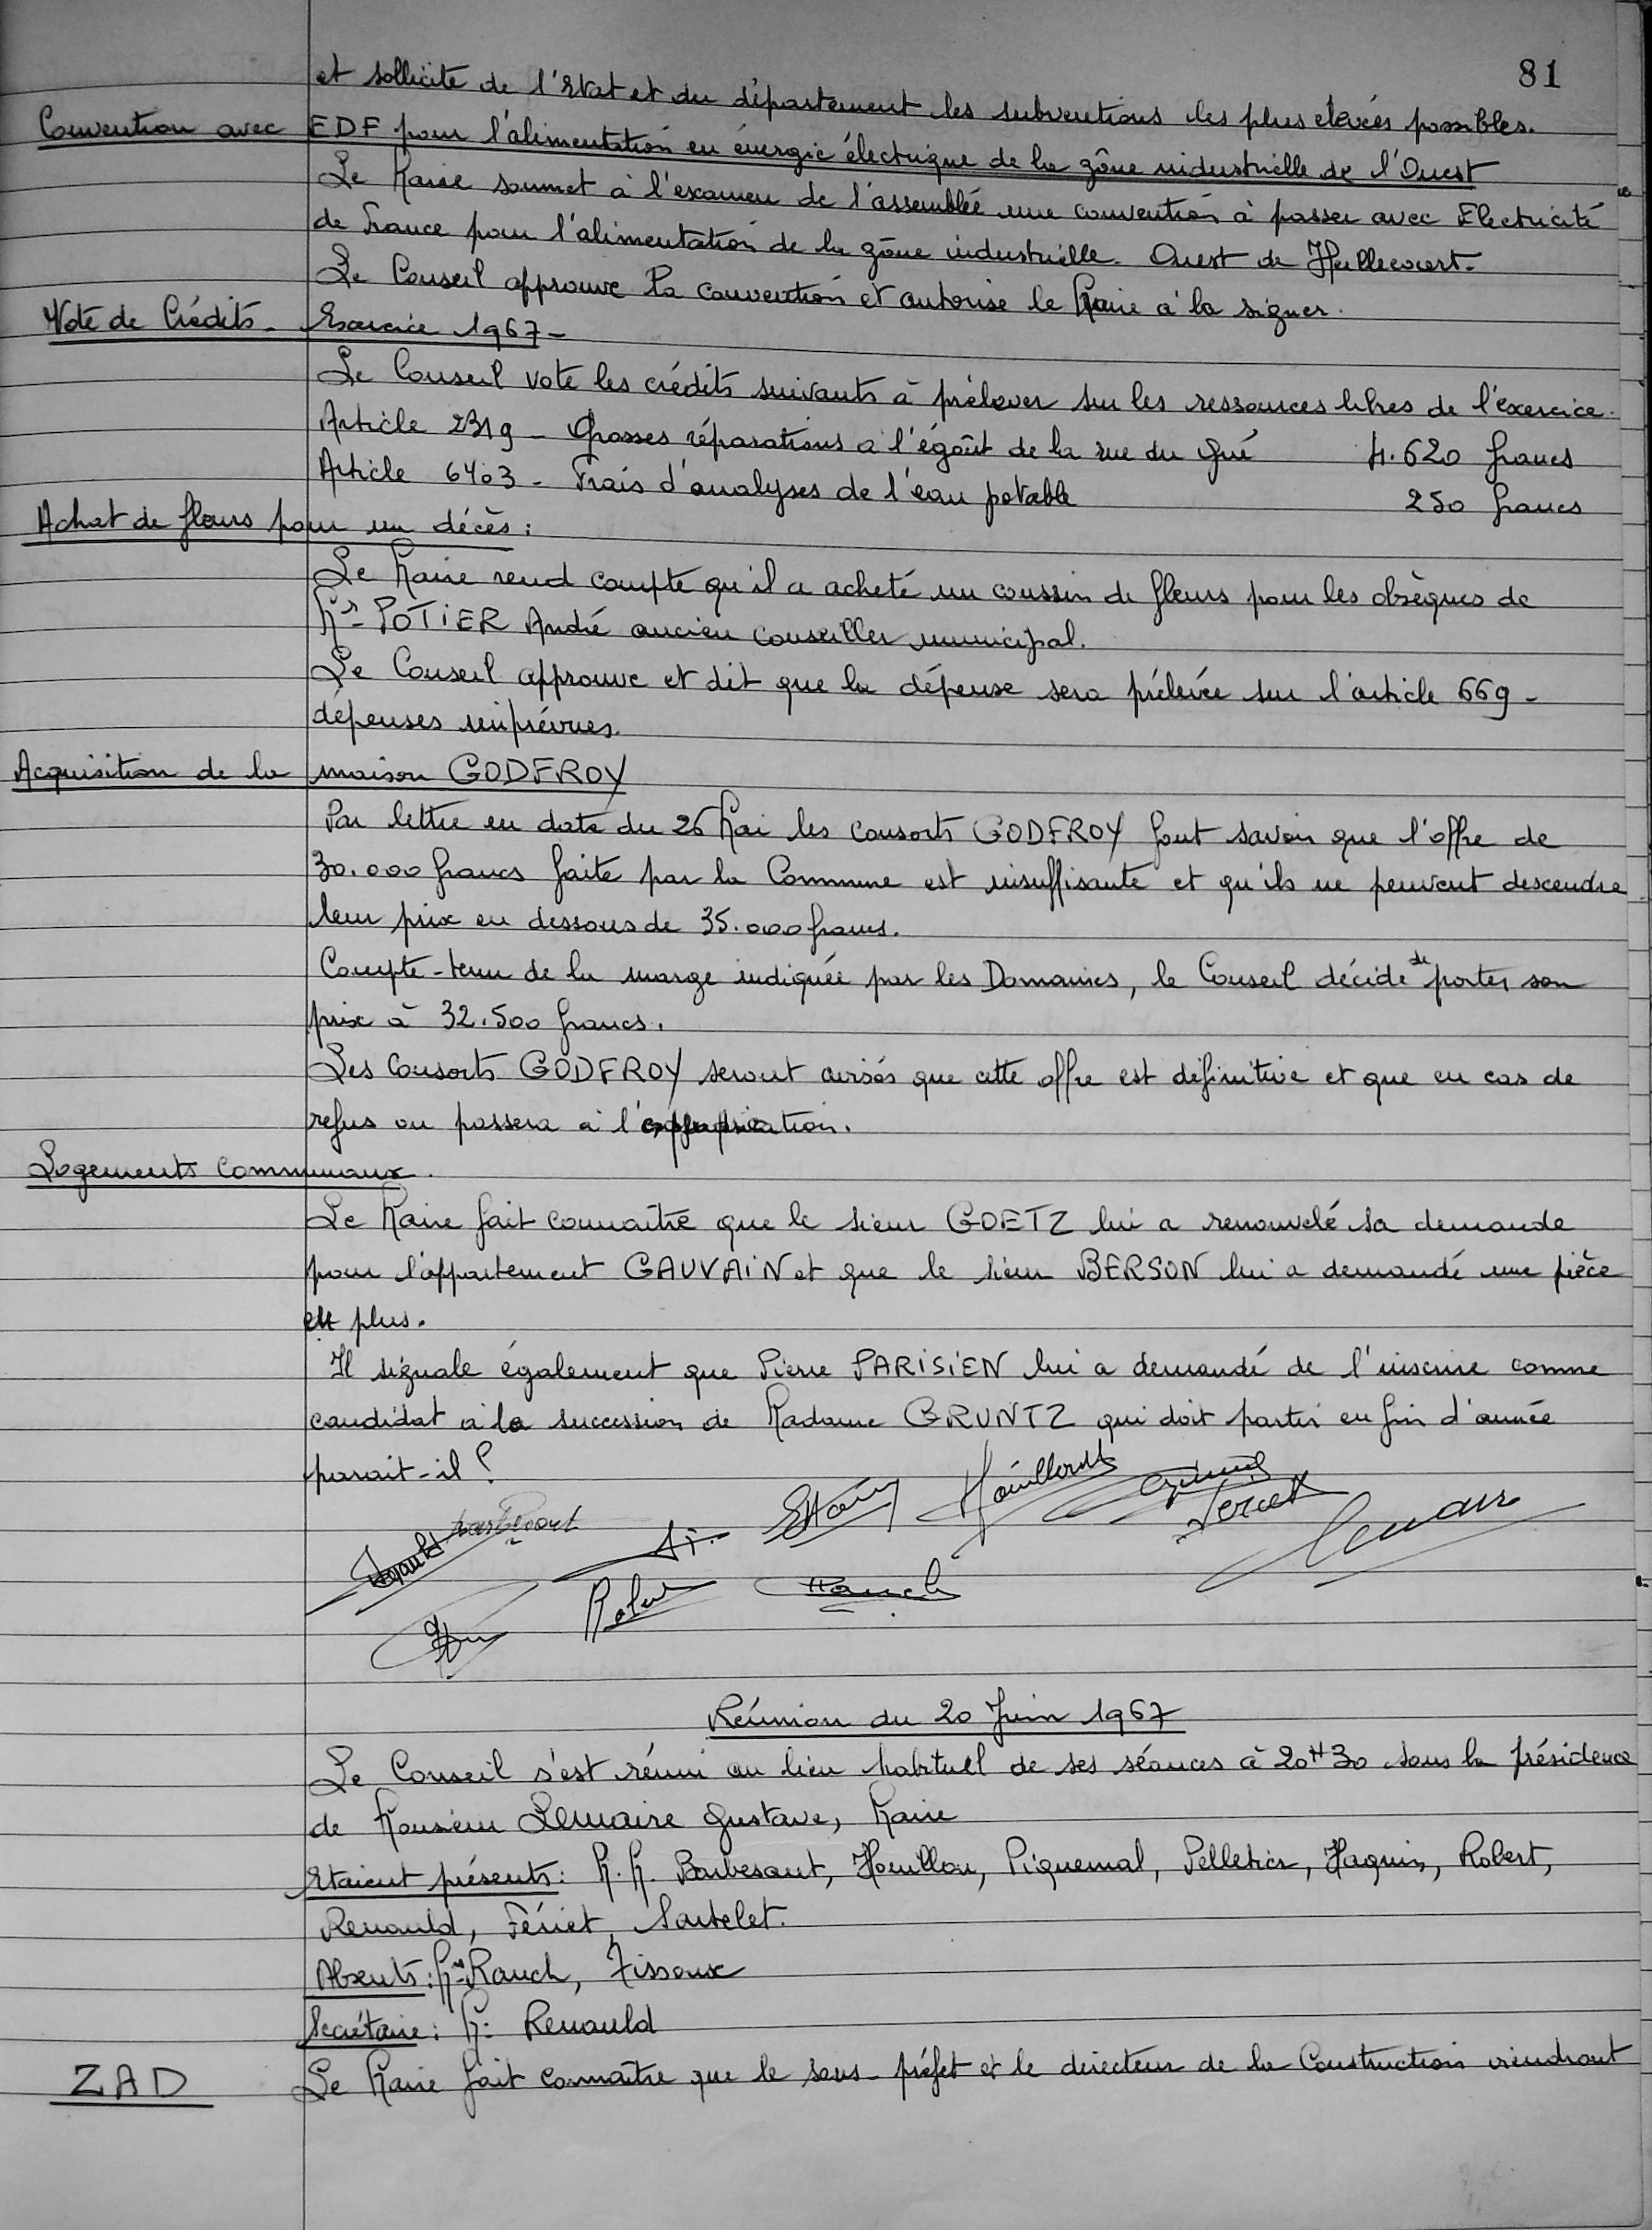 81
et sollicite de l'Etat et du département les subventions les plus élevées possibles.
Convention avec EDF pour l'alimentation en énergie électrique de la zône industrielle de l'Ouest
Le Maire soumet à l'examen de l'assemblée une convention à passer avec Electricité
de France pour l'alimentation de la zône industrielle Ouest de
Le Conseil approuve la convention et autorise le Maire à la signer.
Vote de Crédits - Exercice 1967 -
Le Conseil vote les crédits suivants à prélever sur les ressources libres de l'exercice.
Article 2319 - Grosses réparations à l'égoût de la rue du Gué 4.620 francs
Article 6403 - Frais d'analyses de l'eau potable 250 francs
Achat de fleurs pour un décès :
Le Maire rend compte qu'il a acheté un coussin de fleurs pour les obsèques de
Mr POTIER André ancien conseiller municipal.
Le Conseil approuve et dit que la dépense sera prélevée sur l'article 669 -
dépenses imprévues.
Acquisition de la maison GODFROY
Par lettre en date du 26 Mai les consorts GODFROY font savoir que l'offre de
30.000 francs faite par la Commune est insuffisante et qu'ils ne peuvent descendre
leur prix en dessous de 35.000 francs.
Compte-tenu de la marge indiquée par les Domaines, le Conseil décide de porter son
prix à 32.500 francs.
Les Consorts GODFROY seront avisés que cette offre est définitive et que en cas de
refus on passera à l'expropriation.
Logements communaux.
Le Maire fait connaître que le sieur GOETZ lui a renouvelé sa demande
pour l'appartement GAUVAIN et que le sieur BERSON lui a demandé une pièce
en plus.
Il signale également que Pierre PARISIEN lui a demandé de l'inscrire comme
candidat à la succession de Madame GRUNTZ qui doit partir en fin d'année
parait-il ?
Robert
Rauch
Lemaire
Réunion du 20 Juin 1967
Le Conseil s'est réuni au lieu habituel de ses séances à 20H30 sous la présidence
de Monsieur Lemaire Gustave, Maire
Etaient présents : M.M. Barbesant, Houillon, Piquemal, Pelletier, Haquin, Robert,
Renauld, Fériet, Sartelet.
Absents : Mrs Rauch, Tissoux
Secrétaire : M. Renauld
ZAD Le Maire fait connaître que le sous-préfet et le directeur de la Construction viendront